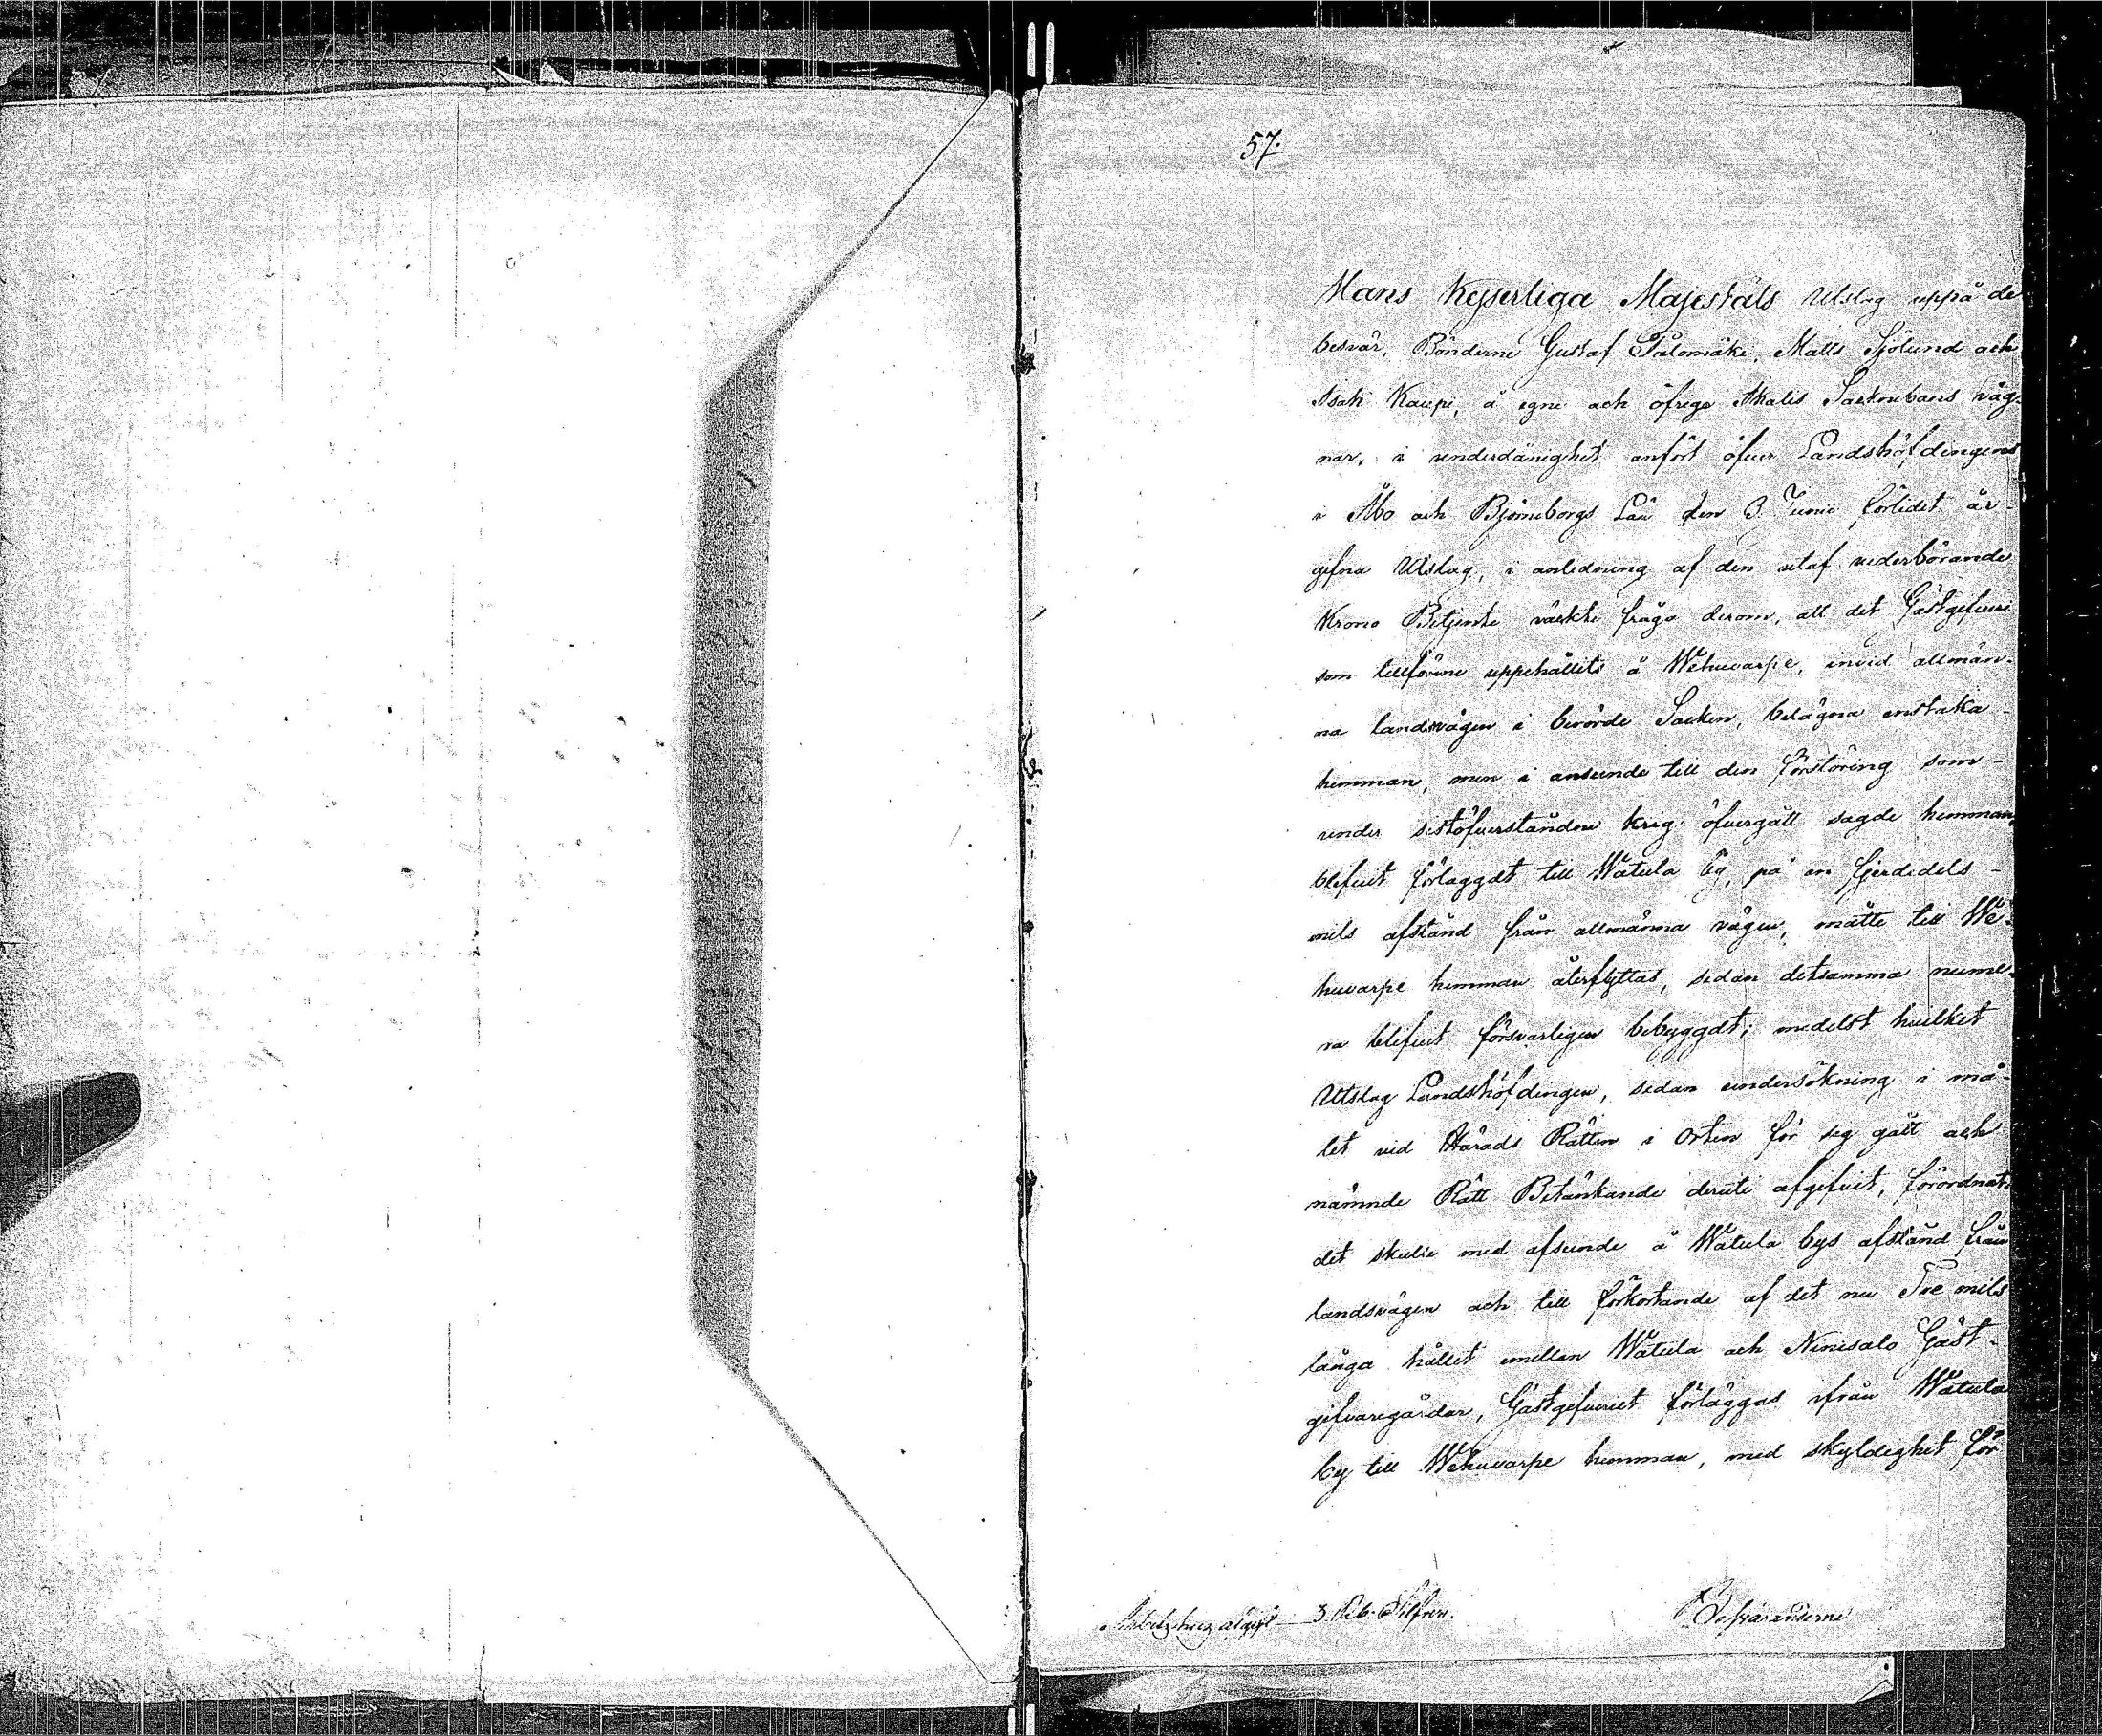 57.
Hans Kejserliga Majestäts Utslag uppå de
besvär, Bönderne Gustaf Palomäki, Matts Sjölund och
Isak Kaupi, å egne och öfrige Ikalis Sockneboers väg-
nar, i underdånighet anfört öfver Landshöfdingens
i Åbo och Björneborgs Län den 3. Junii förlidet år
gifna Utslag, i anledning af den utaf vederbörande
Krono Betjente väckte fråga derom, att det Gästgifveri
som tillförene uppehållits å Wehuvarpe, invid allmän-
na landsvägen i berörde Socken, belägna enstaka
hemman, men i anseende till den förstöring som
under sistöfverståndne krig öfvergått sagde hemman,
blifvit förlaggdt till Watula by, på en fjerdedels
mils afstånd från allmänna vägen, måtte till We-
huvarpe hemman återflyttas, sedan detsamma nume-
ra blifvit försvarligen bebyggdt; medelst hvilket
Utslag Landshöfdingen, sedan undersökning i må-
let vid Härads Rätten i Orten för sig gått och
nämnde Rätt Betänkande deruti afgifvit, förordnat,
det skulle med afseende å Watula bys afstånd från
landsvägen och till förkortande af det nu Tre mils
långa hållet emellan Watula och Ninisalo Gäst-
gifvaregårdar, Gästgifveriet förläggas ifrån Watula
by till Wehuvarpe hemman, med skyldighet för
3 Rub. Silfver.
Besväranderne